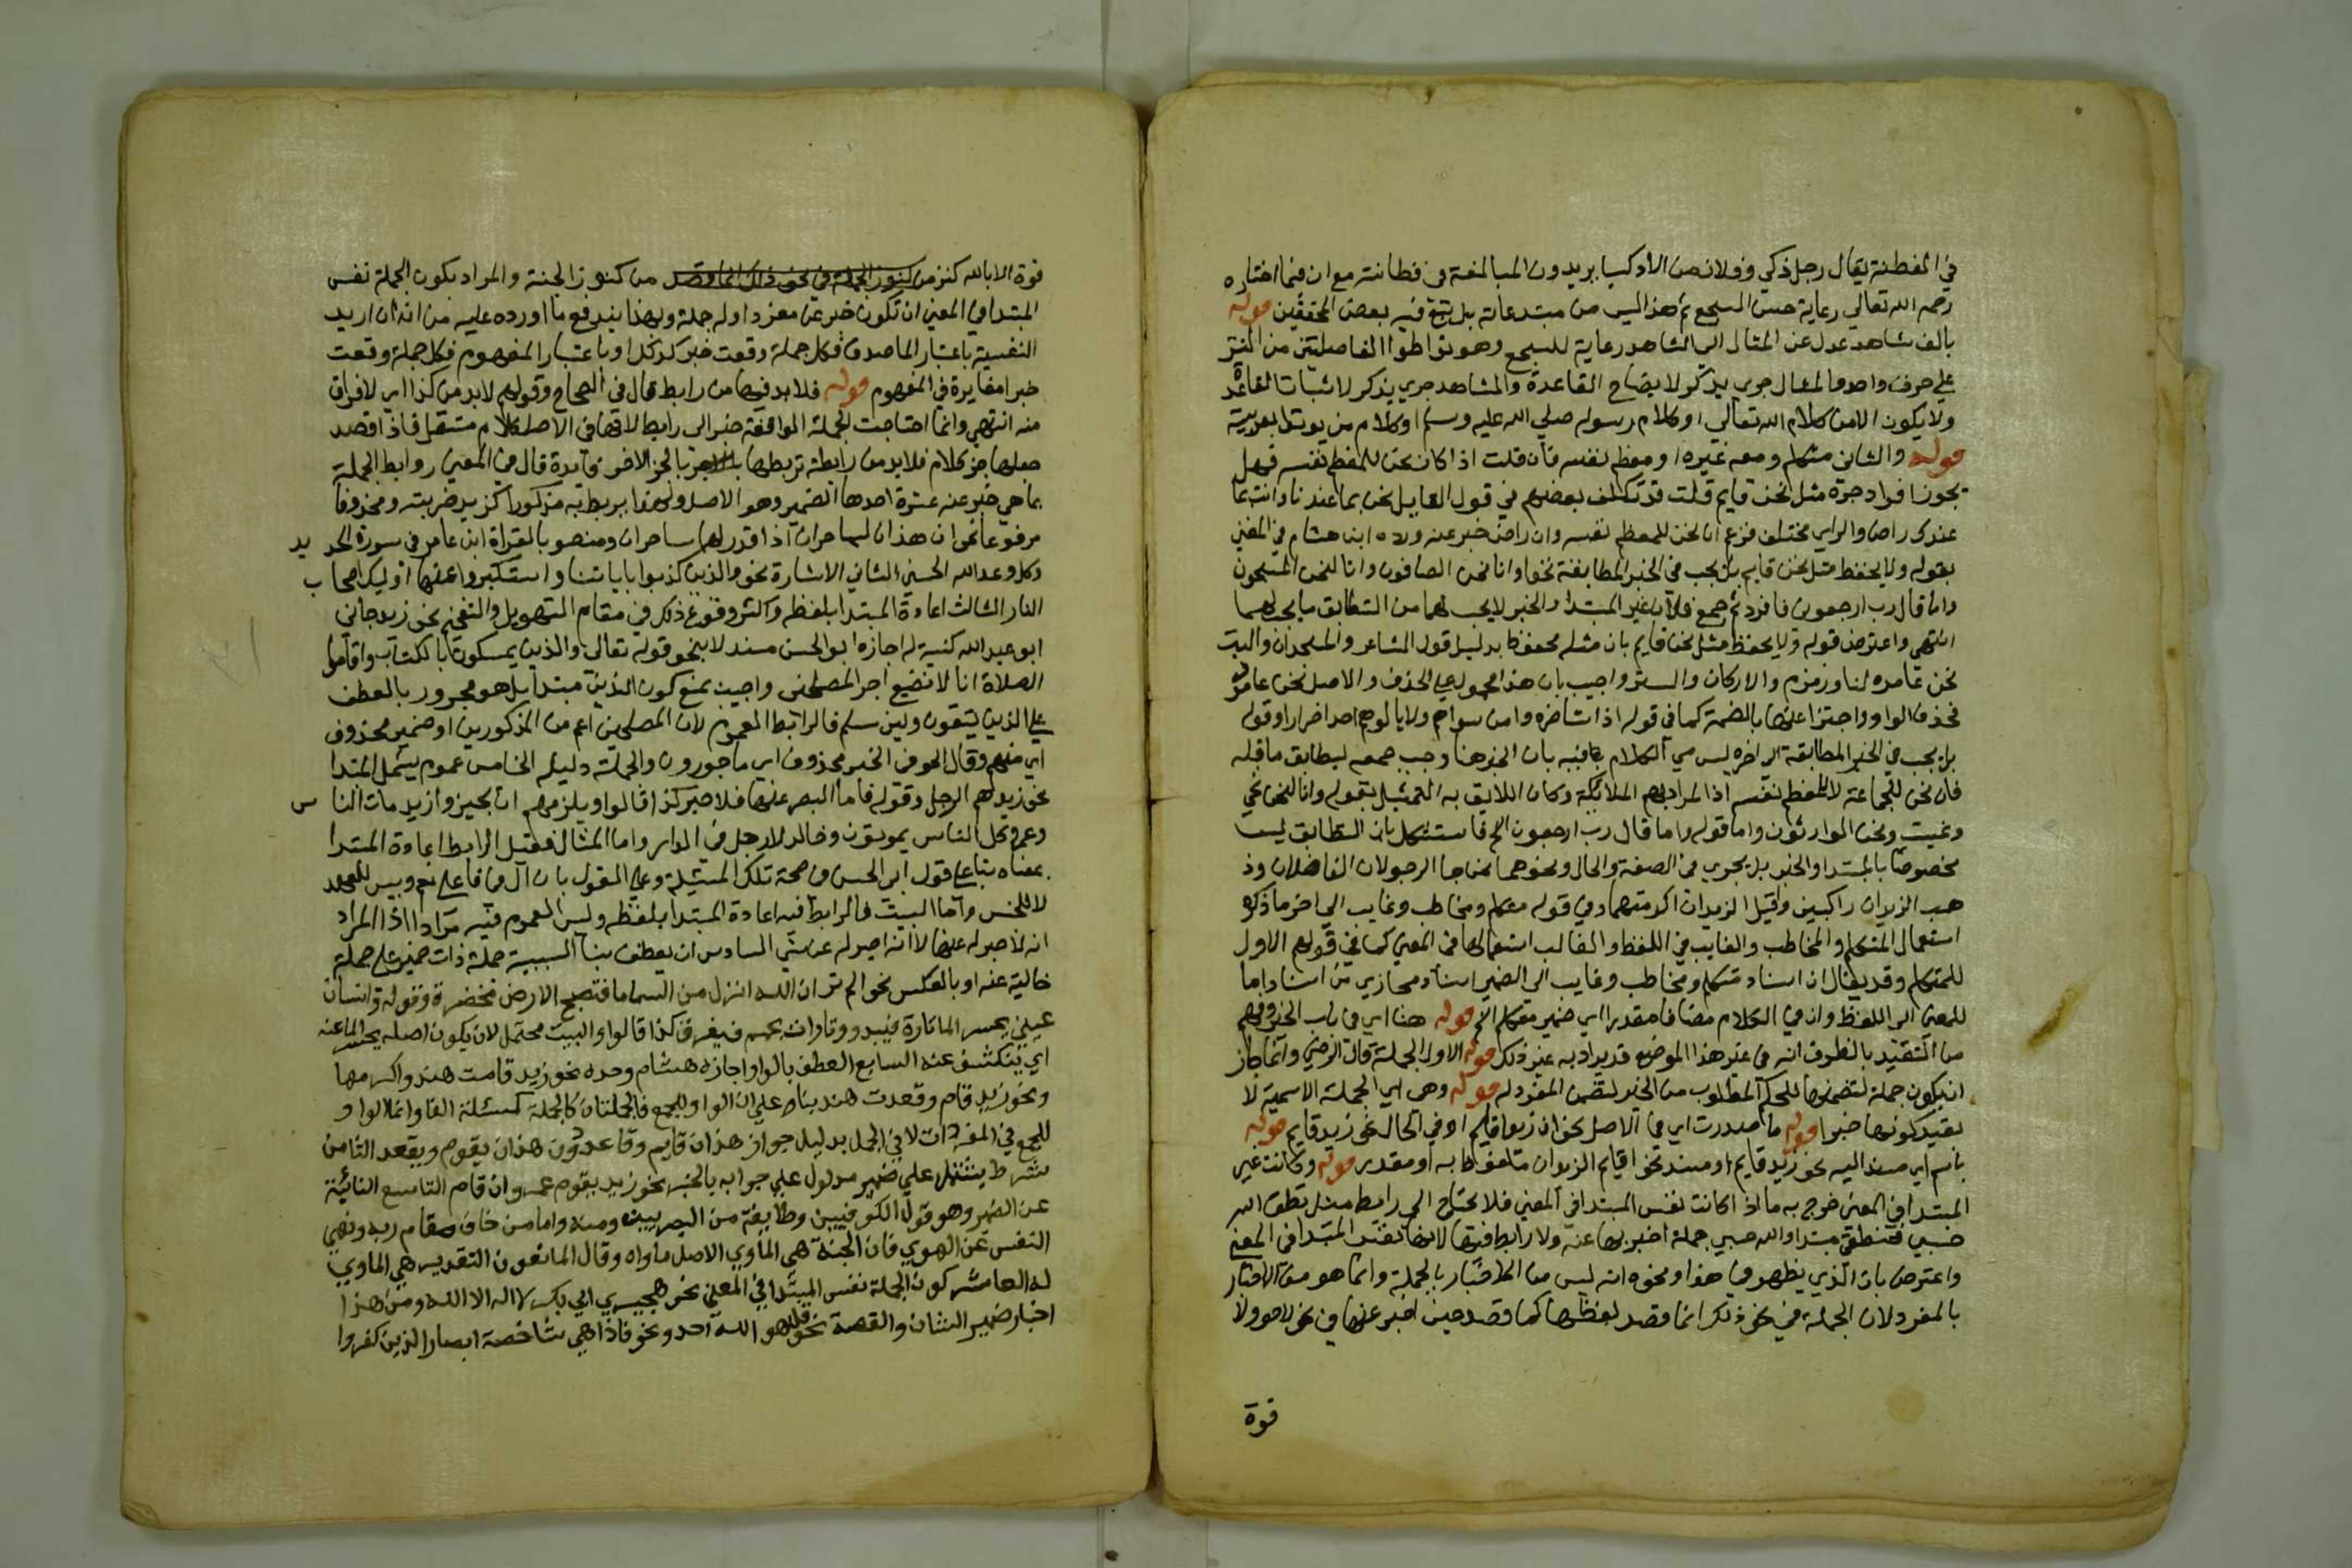 في الفطنة يقال رجل ذكي وفلان من الأذكيا يريدون المبالغة في فطانته مع ان فيما اختاره
رحمه الله تعالي رعاية حسن السجع ثم هذا ليس من مبتدعاته بل تبع فيه بعض المحققين قوله
بالف شاهد عدل عن المثال الي الشاهد رعاية للسجع وهو تواطؤ الفاصلتين من النثر
علي حرف واحد والمثال جزئي يذكر لايضاح القاعدة والشاهد جزئي يذكر لاثبات القاعدة
ولا يكون الا من كلام الله تعالي او كلام رسوله صلي الله عليه وسلم او كلام من يوثق بعربيته
قوله والثاني متكلم ومعه غيره او معظم نفسه فان قلت اذا كان نحن للمعظم نفسه فهل
يجوز افراد خبره مثل نحن قايم قلت قد تكلف بعضهم في قول القايل نحن بما عندنا وانت بما
عندك راض والراي مختلف فزعم ان نحن للمعظم نفسه وان راض خبر عنه ورده ابن هشام في المغني
بقوله ولا يحفظ مثل نحن قايم بل يجب في الخبر المطابقة نحو وانا لنحن الصافون وانا لنحن المسبحون
واما قال رب ارجعون فافرد ثم جمع فلان غير المبتدا والخبر لا يجب لهما من التطابق ما يجب لهما
انتهي واعترض قوله ولا يحفظ مثل نحن قايم بان مثله محفوظ بدليل قول الشاعر والمسجدان والبيت
نحن عامره لنا وزمزم والاركان والستر واجيب بان هذا محمول علي الحذف والاصل نحن عامروه
فحذف الواو واجتزا عنها بالضمة كما في قوله اذا شا ضره وامن سواهم ولا يالوهم احد اضرارا وقوله
بل يجب في الخبر المطابقة الي اخره ليس من الكلام بان الخبر هنا وجب جمعه ليطابق ما قبله
فان نحن للجماعة لا للمعظم نفسه اذ المراد بهم الملائكة وكان اللايق به التمثيل بقوله وانا لنحن نحي
ونميت ونحن الوارثون واما قوله واما قال رب ارجعون الخ فاستشكل بان التطابق ليس
مخصوصا بالمبتدا والخبر بل يجري في الصفة والحال ونحوهما نحن جا الرجلان الفاضلان وذ
هب الزيدان راكبين وقيل الزيدان اكرمتهما وفي قوله متكلم ومخاطب وغايب الي اخر ما ذكره
استعمال المتكلم والمخاطب والغايب في اللفظ والغالب استعمالها في المعني كما في قولهم الاول
للمتكلم وقد يقال ان اسناد متكلم ومخاطب وغايب الي الضمير اسناد مجازي من اسناد ما
للمعني الي اللفظ وان في الكلام مضافا مقدرا اي ضمير متكلم الخ قوله هنا اي في باب الخبر وفهم
من التقييد بالظرف انه في غير هذا الموضع قد يراد به غير ذلك قوله الاول الجملة قال الرضي وانما جاز
ان يكون جملة لتضمنها للحكم المطلوب من الخبر لتضمن المفرد له قوله وهي اي الجملة الاسمية لا
بقيد كونها خبرا قوله ما صدرت اي في الاصل نحو ان زيدا قايم او في الحال نحو زيد قايم قوله
باسم اي مسند اليه نحو زيد قايم او مسند نحو اقايم الزيدان ملفوظ به او مقدر قوله وكانت غير
المبتدا في المعني خرج به ما اذا كانت نفس المبتدا في المعني فلا تحتاج الي رابط مثل نطقي الله
حسبي فنطقي مبتدا والله حسبي جملة اخبر بها عنه ولا رابط فيها لانها نفس المبتدا في المعني
واعترض بان الذي يظهر في هذا ونحوه انه ليس من الاخبار بالجملة وانما هو من الاخبار
بالمفرد لان الجملة في نحو ذلك انما قصد لفظها كما قصد حين اخبر عنها في نحو لا حول ولا
قوة
قوة الا بالله كنز من كنوز الجملة في نحو ذلك انما قصد من كنوز الجنة والمراد بكون الجملة نفس
المبتدا في المعني ان تكون خبر عن مفرد اوله جملة وبهذا يندفع ما اورده عليه من انه ان اريد
النفسية باعتبار الماصدق فكل جملة وقعت خبر كذلك او باعتبار المفهوم فكل جملة وقعت
خبرا مغايرة في المفهوم قوله فلا بد فيها من رابط قال في الصحاح وقولهم لا بد من كذا اي لا فراق
منه انتهي وانما احتاجت الجملة الواقعة خبر الي رابط لانها في الاصل كلام مستقل فاذا قصد
جعلها جز كلام فلا بد من رابطة تربطها بالجز الاخر فايدة قال في المغني روابط الجملة
بما هي خبر عنه عشرة احدها الضمير وهو الاصل ولهذا يربط به مذكورا كزيد ضربته ومحذوفا
مرفوعا نحو ان هذان لساحران اذا قدر لهما ساحران ومنصوبا لقراة ابن عامر في سورة الحديد
وكل وعد الله الحسني الثاني الاشارة نحو والذين كذبوا باياتنا واستكبروا عنها اوليك اصحاب
النار الثالث اعادة المبتدا بلفظه واكثر وقوع ذلك في مقام التهويل والتفخيم نحو زيد جاني
ابو عبد الله كنية له اجازه ابو الحسن مستدلا بنحو قوله تعالي والذين يمسكون بالكتاب واقاموا
الصلاة انا لا نضيع اجر المصلحين واجيب بمنع كون الذين مبتدا بل هو مجرور بالعطف
علي الذين يتقون ولين سلم فالرابط العموم لان المصلحين اعم من المذكورين او ضمير محذوف
اي منهم وقال الحوفي الخبر محذوف اي ماجورون والجملة دليله الخامس عموم يشمل المبتدا
نحو زيد نعم الرجل وقوله فاما الصبر عنها فلا صبر كذا قالوا ويلزمهم ان يجيزوا زيد مات الناس
وعمرو كل الناس يموتون وخالد لا رجل في الدار واما المثال فقيل الرابط اعادة المبتدا
بمعناه بناء علي قول ابي الحسن في صحة تلك المسئلة وعلي القول بان ال في فاعلي نعم وبيس للعهد
لا للجنس واما البيت فالرابط فيه اعادة المبتدا بلفظه وليس العموم فيه مرادا اذ المراد
انه لا صبر له عنها لا انه لا صبر له عن شي السادس ان يعطف بفا السببية جملة ذات ضمير علي جملة
خالية عنه او بالعكس نحو الم تر ان الله انزل من السما ما فتصبح الارض مخضرة وقوله وانسان
عيني يحسر الما تارة فيبدو وتارات يجم فيغرق كذا قالوا والبيت محتمل لان يكون اصله يحسر الما عنه
اي ينكشف عنه السابع العطف بالواو اجازه هشام وحده نحو زيد قامت هند واكرمها
ونحو زيد قام وقعدت هند بناء علي ان الواو للجمع فالجملتان كالجملة كمسئلة الفا وانما الواو
للجمع في المفردات لا في الجمل بدليل جواز هذان قايم وقاعد دون هذان يقوم ويقعد الثامن
شرط يشتمل علي ضمير مدلول علي جوابه بالخبر نحو زيد يقوم عمرو ان قام التاسع ال النائبة
عن الضمير وهو قول الكوفيين وطايفة من البصريين ومنه واما من خاف مقام ربه ونهي
النفس عن الهوي فان الجنة هي الماوي الاصل ماواه وقال المانعون التقدير هي الماوي
له العاشر كون الجملة نفس المبتدا في المعني نحو هجيري ابي بكر لا اله الا الله ومن هذا
اخبار ضمير الشان والقصة نحو قل هو الله احد ونحو فاذا هي شاخصة ابصار الذين كفروا